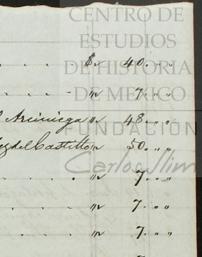 CENTRO DE
ESTUDIOS
DE HISTORIA
DE MÉXICO
FUNDACIÓN
Carlos Slim
$ " 40 . " "
" 7 . " "
Arciniega " 48 . " "
del Castillo " 50 . " "
" 7 . " "
" 7 . " "
" 7 . " "